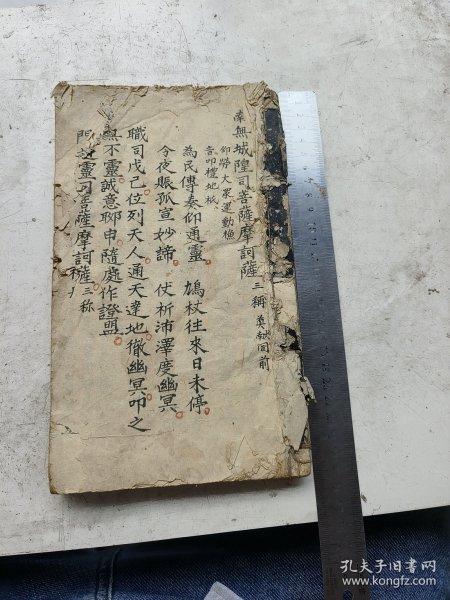 南無城隍司菩薩摩訶薩 三稱 奠献同前
仰勞大眾運動
音叩禮地祇
為民傳奏仰通靈 鳩杖往來日未停
今夜賑孤宣妙諦 伏祈沛澤度幽冥
職司戊己位列天人通天達地徹幽冥叩之
無不靈誠意聊申隨處作證盟
門 靈司菩薩摩訶薩 三称
孔夫子旧书网
www.kongfz.com